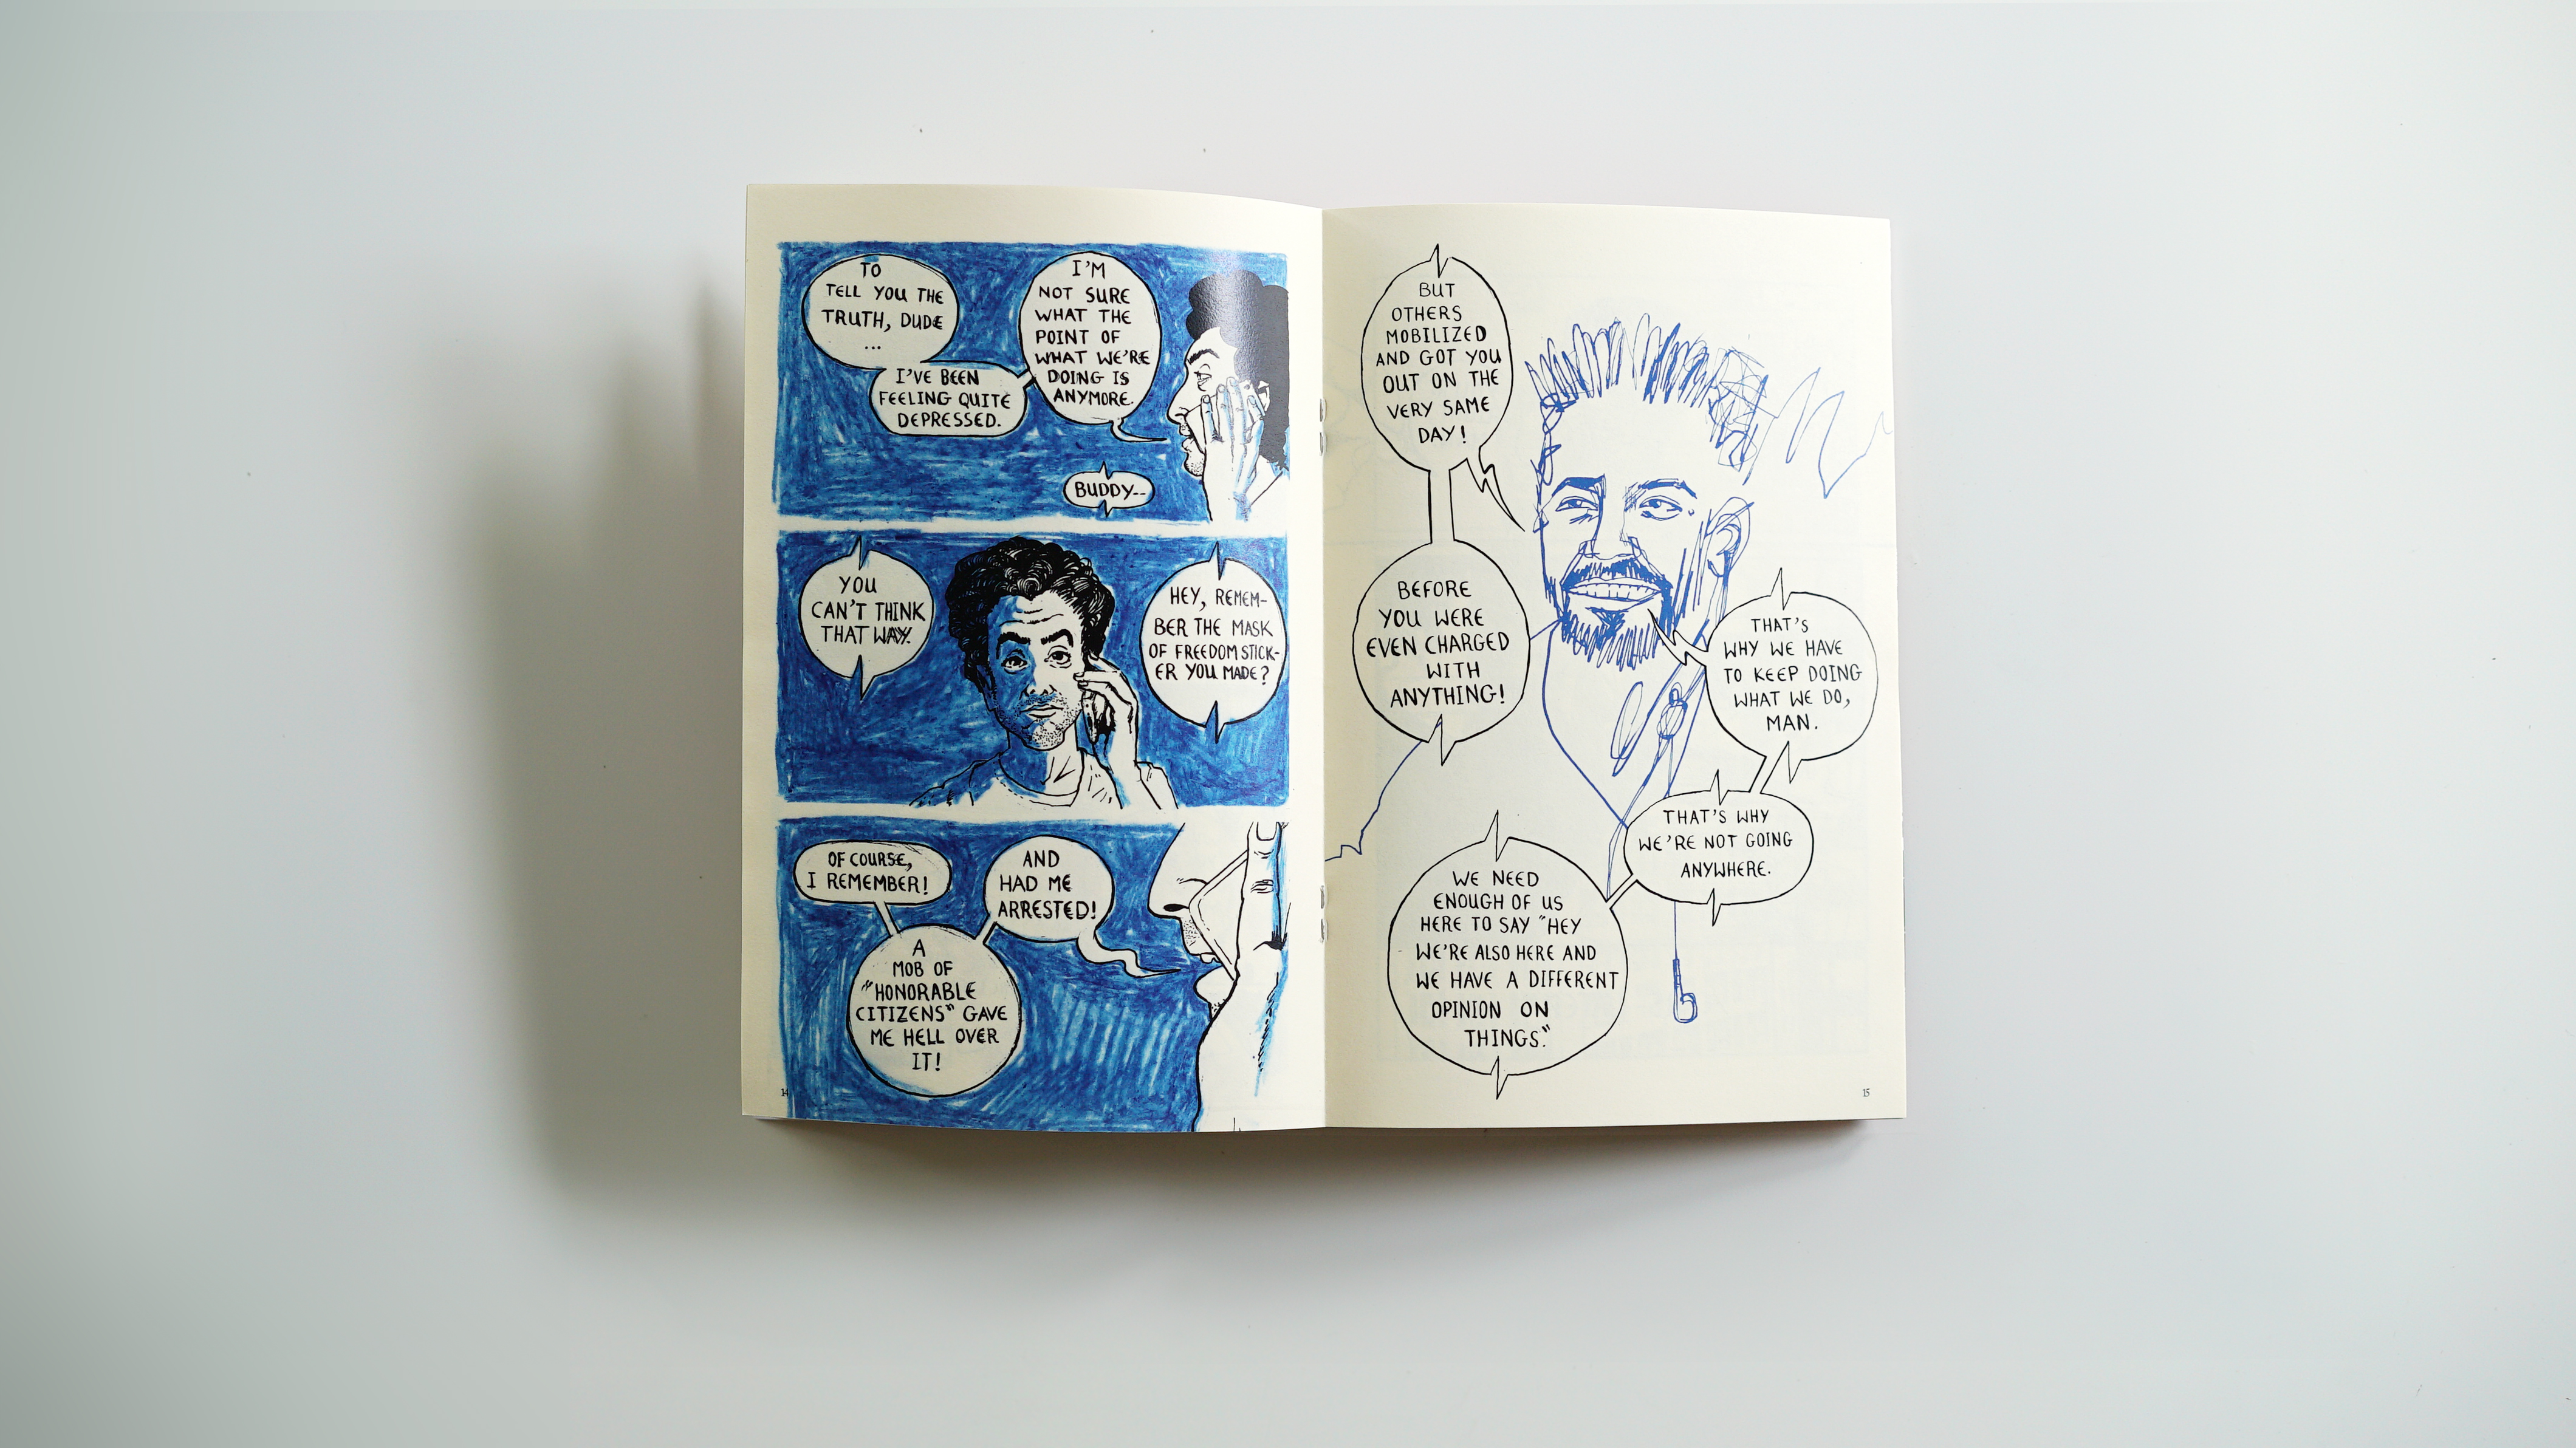 TO
TELL YOU THE
TRUTH, DUDE
...
I'VE BEEN
FEELING QUITE
DEPRESSED.
I'M
NOT SURE
WHAT THE
POINT OF
WHAT WE'RE
DOING IS
ANYMORE.
BUDDY--
YOU
CAN'T THINK
THAT WAY.
HEY, REMEM-
BER THE MASK
OF FREEDOM STICK-
ER YOU MADE?
OF COURSE,
I REMEMBER!
A
MOB OF
"HONORABLE
CITIZENS" GAVE
ME HELL OVER
IT!
AND
HAD ME
ARRESTED!
14
BUT
OTHERS
MOBILIZED
AND GOT YOU
OUT ON THE
VERY SAME
DAY!
BEFORE
YOU WERE
EVEN CHARGED
WITH
ANYTHING!
THAT'S
WHY WE HAVE
TO KEEP DOING
WHAT WE DO,
MAN.
THAT'S WHY
WE'RE NOT GOING
ANYWHERE.
WE NEED
ENOUGH OF US
HERE TO SAY "HEY
WE'RE ALSO HERE AND
WE HAVE A DIFFERENT
OPINION ON
THINGS."
15